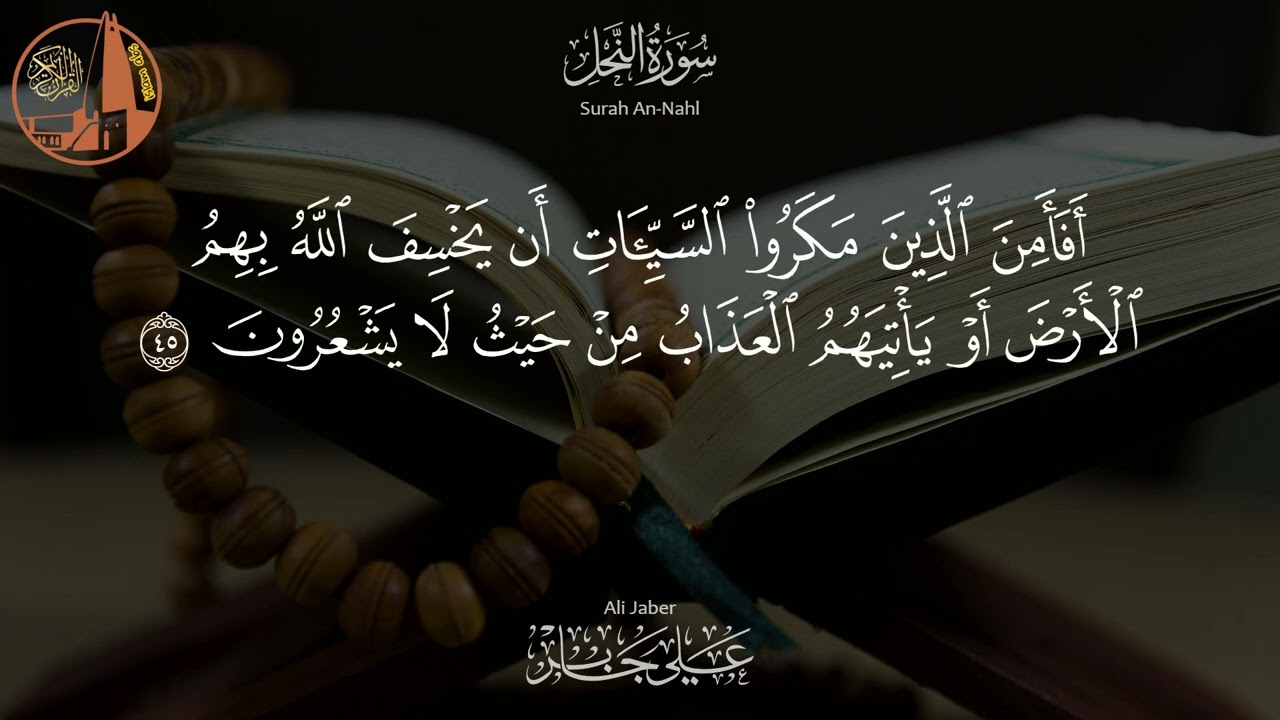 سُورَةُ النَّحْلِ
Surah An-Nahl
أَفَأَمِنَ ٱلَّذِينَ مَكَرُوا۟ ٱلسَّيِّـَٔاتِ أَن يَخْسِفَ ٱللَّهُ بِهِمُ
ٱلْأَرْضَ أَوْ يَأْتِيَهُمُ ٱلْعَذَابُ مِنْ حَيْثُ لَا يَشْعُرُونَ ٤٥
Ali Jaber
عَلِي جَابِر
القرآن الكريم